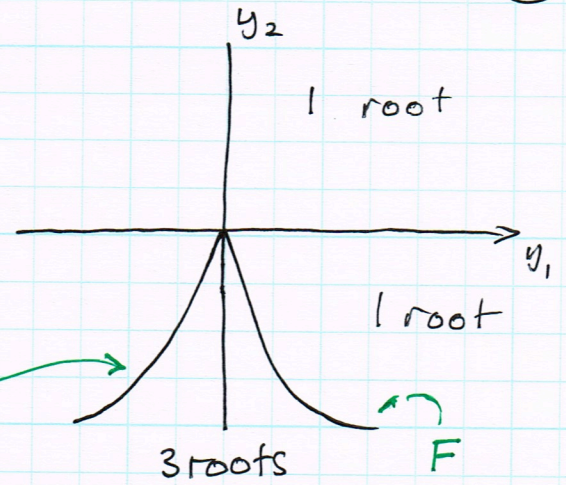 y₂
1 root
y₁
1 root
3 roots
F